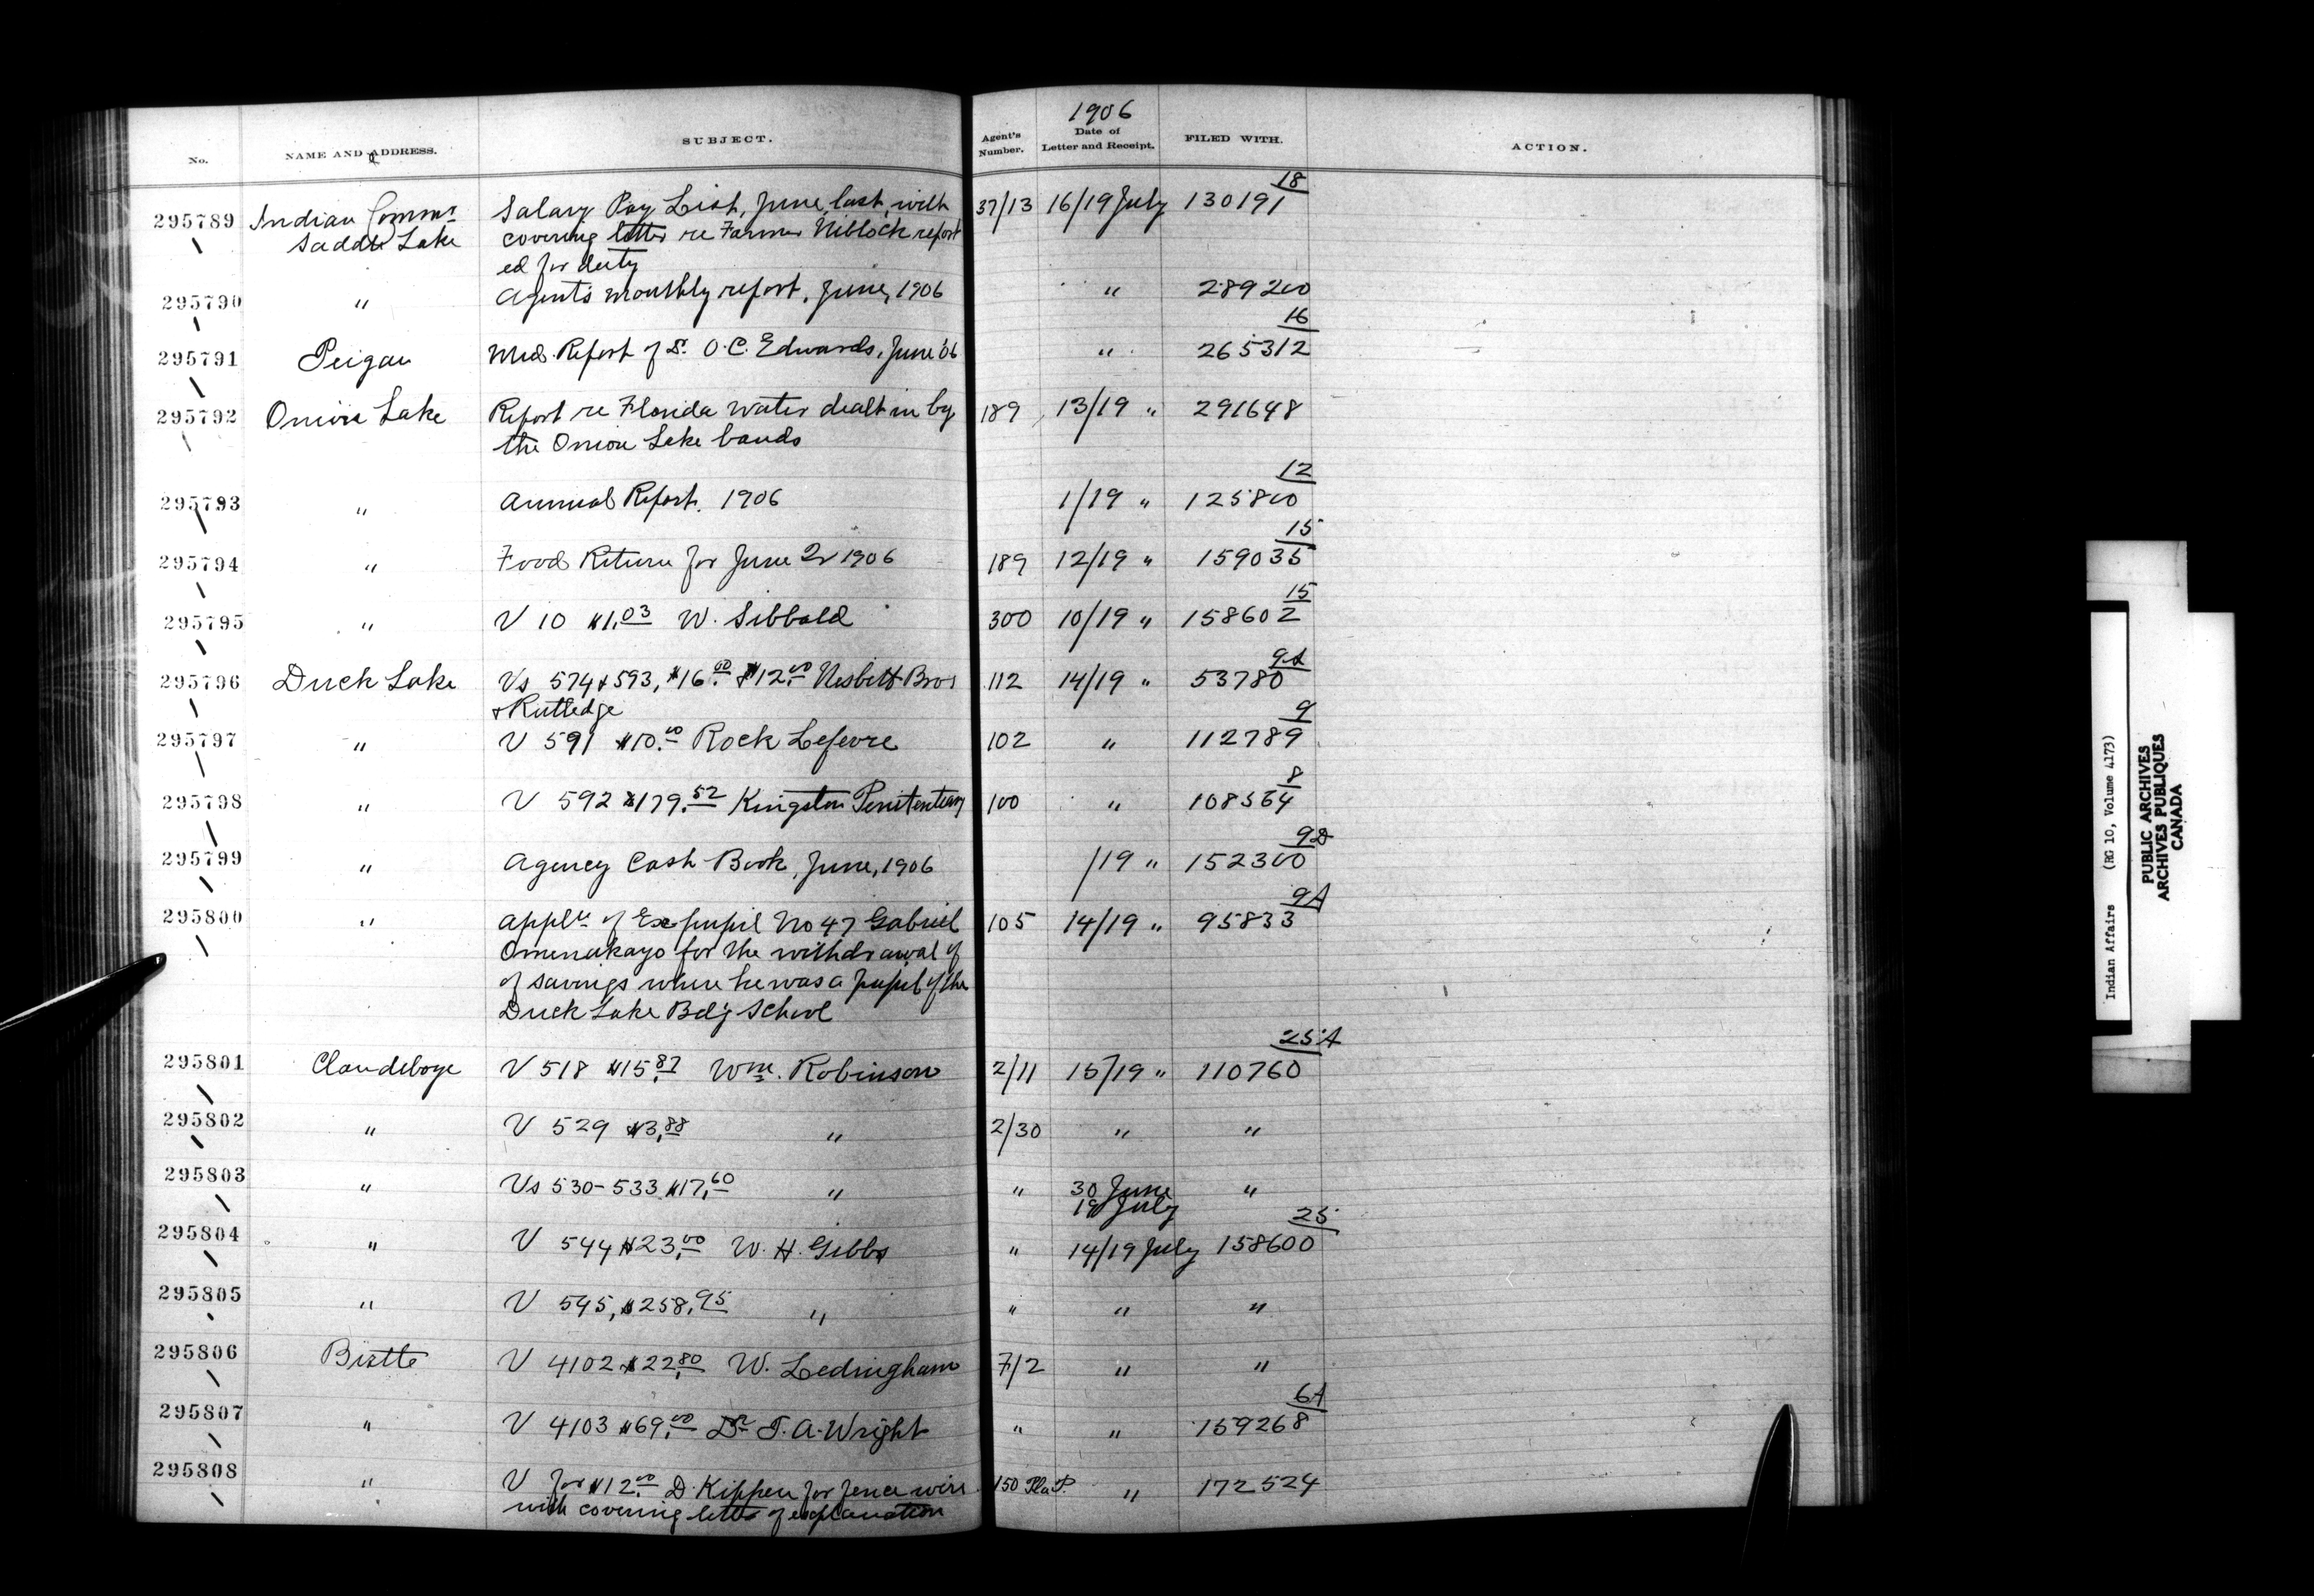 1906
No. NAME AND ADDRESS. SUBJECT. Agent's Number. Date of Letter and Receipt. FILED WITH. ACTION.
18
295789 Indian Commr Salary Pay List, June, last, with 37/13 16/19 July 130191
Saddle Lake covering letter re Farmer Niblock report
ed for duty
295790 " Agent's monthly report, June, 1906 " 289200
16
295791 Peigan Med. Report of Dr. O.C. Edwards, June '06 " 265312
295792 Onion Lake Report re Florida Water dealt in by 189 13/19 " 291648
the Onion Lake bands
12
295793 " Annual Report. 1906 1/19 " 125800
15
295794 " Food Return for June 2r 1906 189 12/19 " 159035
15
295795 " V 10 $1.03 W. Sibbald 300 10/19 " 158602
9A
295796 Duck Lake Vs 574 & 593, $16.00 & $12.00 Nesbitt Bros 112 14/19 " 53780
& Rutledge
9
295797 " V 591 $10.00 Rock Lefevre 102 " 112789
8
295798 " V 592 $179.52 Kingston Penitentiary 100 " 108564
9D
295799 " Agency Cash Book, June, 1906 /19 " 152300
9A
295800 " Appln of Ex pupil No 47 Gabriel 105 14/19 " 95833
Omenukayo for the withdrawal of
of savings when he was a pupil of the
Duck Lake Bdg School
25A
295801 Clandeboye V 518 $15.87 Wm. Robinson 2/11 15/19 " 110760
295802 " V 529 $3.88 " 2/30 " "
295803 " Vs 530-533 $17.60 " " 30 June "
19 July
25
295804 " V 544 $23.00 W. H. Gibbs " 14/19 July 158600
295805 " V 545, $258.95 " " " "
295806 Birtle V 4102 $22.80 W. Ledingham 7/2 " "
6A
295807 " V 4103 $69.00 Dr T. A. Wright " " 159268
295808 " V for $12.00 D. Kippen for fence wire 150 Pla P. " 172524
with covering letter of explanation
Indian Affairs (RG 10, Volume 4173)
PUBLIC ARCHIVES
ARCHIVES PUBLIQUES
CANADA